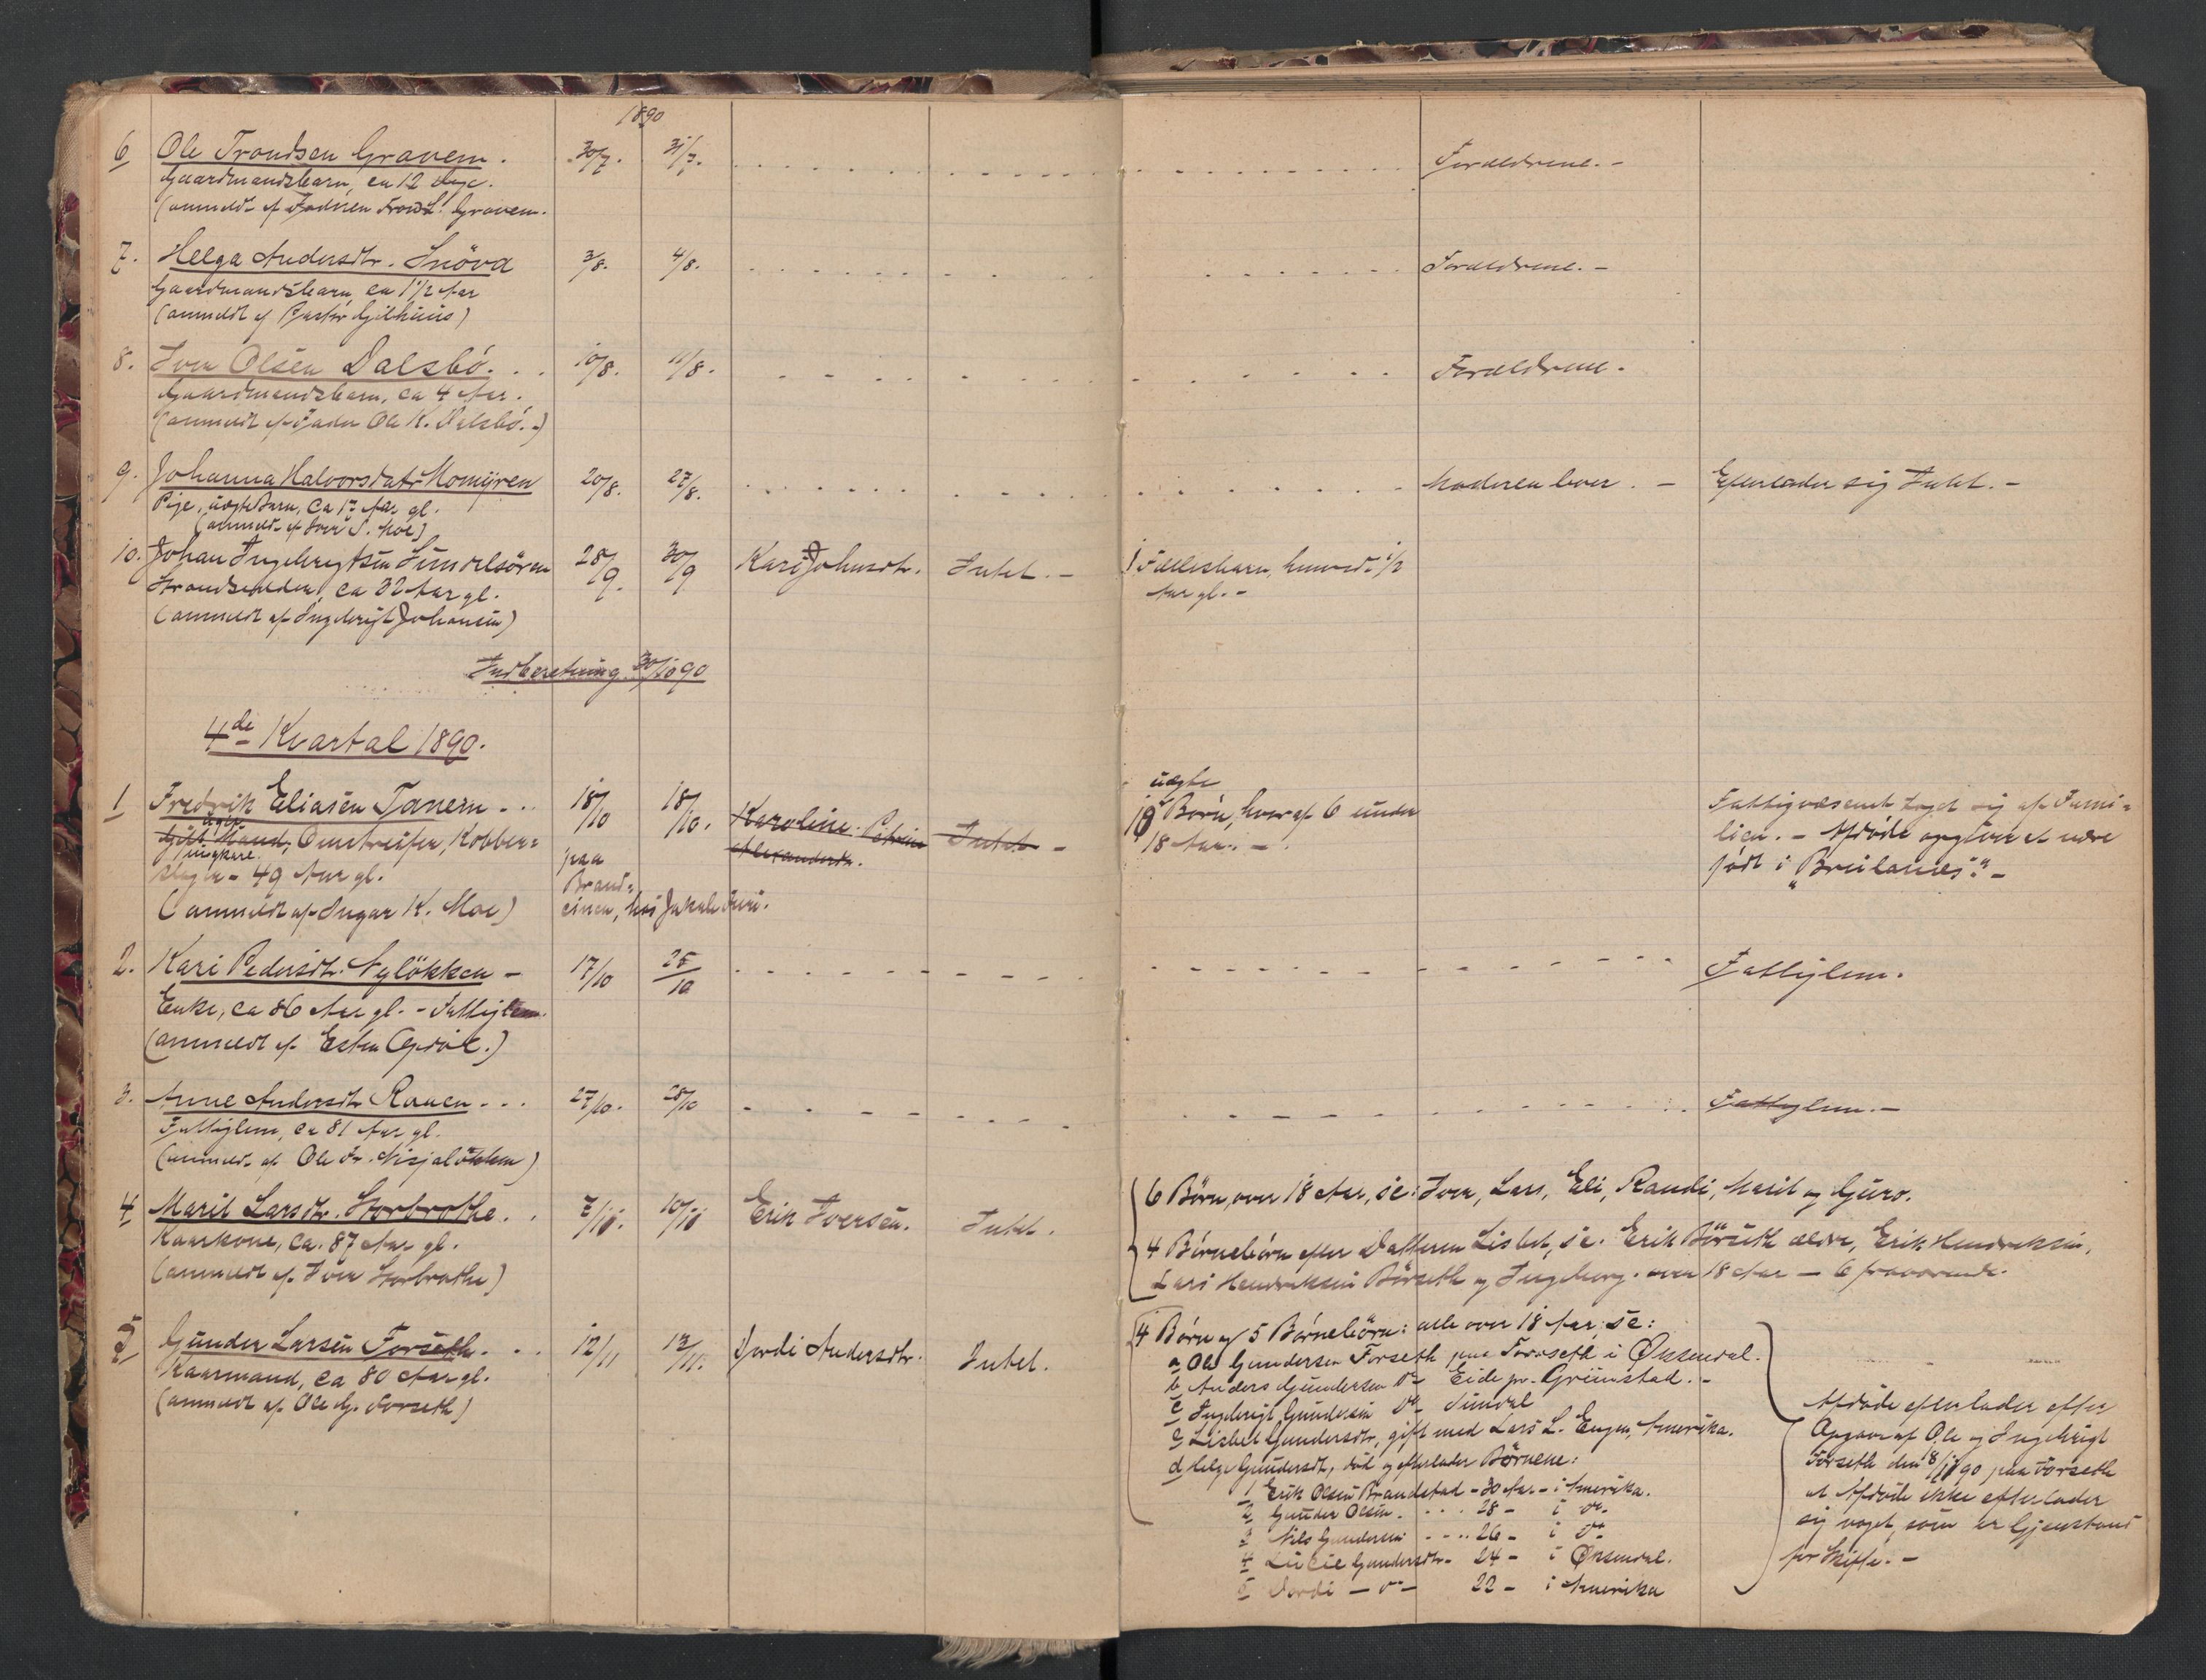 1890
6 Ole Trondsen Gravem. 30/7. 31/7. Forældrene. -
Gaardmandsbarn, ca 12 Dage.
(anmeldt af Faderen Trond L. Gravem.
7. Helga Andersdtr. Snöva 3/8. 4/8. Forældrene. -
Gaardmandsbarn, ca 1 1/2 Aar
(anmeldt af Pastor Gilhuus)
8. Iver Olsen Dalsbö. 10/8. 11/8. Forældrene.
Gaardmandsbarn, ca 4 Aar.
(anmeldt af Fader Ole K. Dalsbö.)
9. Johanna Halvorsdatr Momyren 20/8. 27/8. Moderen lever. - Efterlader sig Intet. -
Pige, uægte Barn, ca 17 Aar gl.
(anmeldt af Iver S. Moe)
10. Johan Ingebrigtsen Sundelsören 28/9. 30/9 Kari Johnsdtr. Intet. - 1 Fællesbarn, henved 1/2
Strandsidder, ca 32 Aar gl. Aar gl. -
(anmeldt af Ingebrigt Johansen)
Indberetning 30/10 90
4de Kvartal 1890.
1 Fredrik Eliasen Tanem 18/10 18/10. Karoline Petrine Alexandersdr. Intet -
uægte
10 Börn, hvoraf 6 under
18 Aar. -
ugift
Gift Mand, Omstreifer, Kobber=
Ungkarl.
slager - 49 Aar gl.
(anmeldt af Ingar K. Moe)
paa
Brand=
einen, hos Jakob
Fattigvæsenet taget sig af Fami=
lien. - Afdöde opgives at være
født i "Breilanes". -
2. Kari Pedersdtr. Nylökken - 17/10 25/10 Fattiglem.
Enke, ca 86 Aar gl. - Fattiglem.
(anmeldt af Esten Opdöl.)
3. Anne Andersdtr Raaen 27/10. 28/10 Fattiglem. -
Fattiglem, ca 81 Aar gl.
(anmeldt af Ole Fr. Nisjalökken)
4 Marit Larsdtr. Storbrothe. 7/11. 10/11 Erik Iversen. Intet.
Kaarkone, ca. 87 Aar gl.
(anmeldt af Iver Storbrothe)
6 Börn, over 18 Aar, sc: Iver, Lars, Eli, Randi, Marit og Guro.
4 Börnebörn efter Datteren Lisbet, sc. Erik Börseth ældre, Erik Hendriksen,
Lars Hendriksen Börseth og Ingeborg. over 18 Aar - 6 fraværende.
5 Gunder Larsen Forseth. 12/11 13/11. Gjordi Andersdtr. Intet.
Kaarmand, ca 80 Aar gl.
(anmeldt af Ole G. Forseth)
4 Börn og 5 Börnebörn: alle over 18 Aar; sc:
a Ole Gundersen Forseth paa Forseth i Öksendal.
b Anders Gundersen do Eide pr. Grimstad. -
c Ingebrigt Gundersen do Sundal
d Lisbet Gundersdtr, gift med Lars L. Engen, Amerika.
d Helge Gundersdt, död og efterlader Börnene:
1 Erik Olsen Brandstad - 30 Aar - i Amerika.
2 Gunder Olsen. 28 - i do.
3 Nils Gundersen 26 - i do
4 Lucie Gundersdtr - 24 - i Öksendal.
5 Dordi - do - 22 - i Amerika
Afdöde efterlader efter
Opgave af Ole og Ingebrigt
Forseth den 8/11 90 paa Forseth
at Afdöde ikke efterlader
sig noget, som er Gjenstand
for Skifte. -